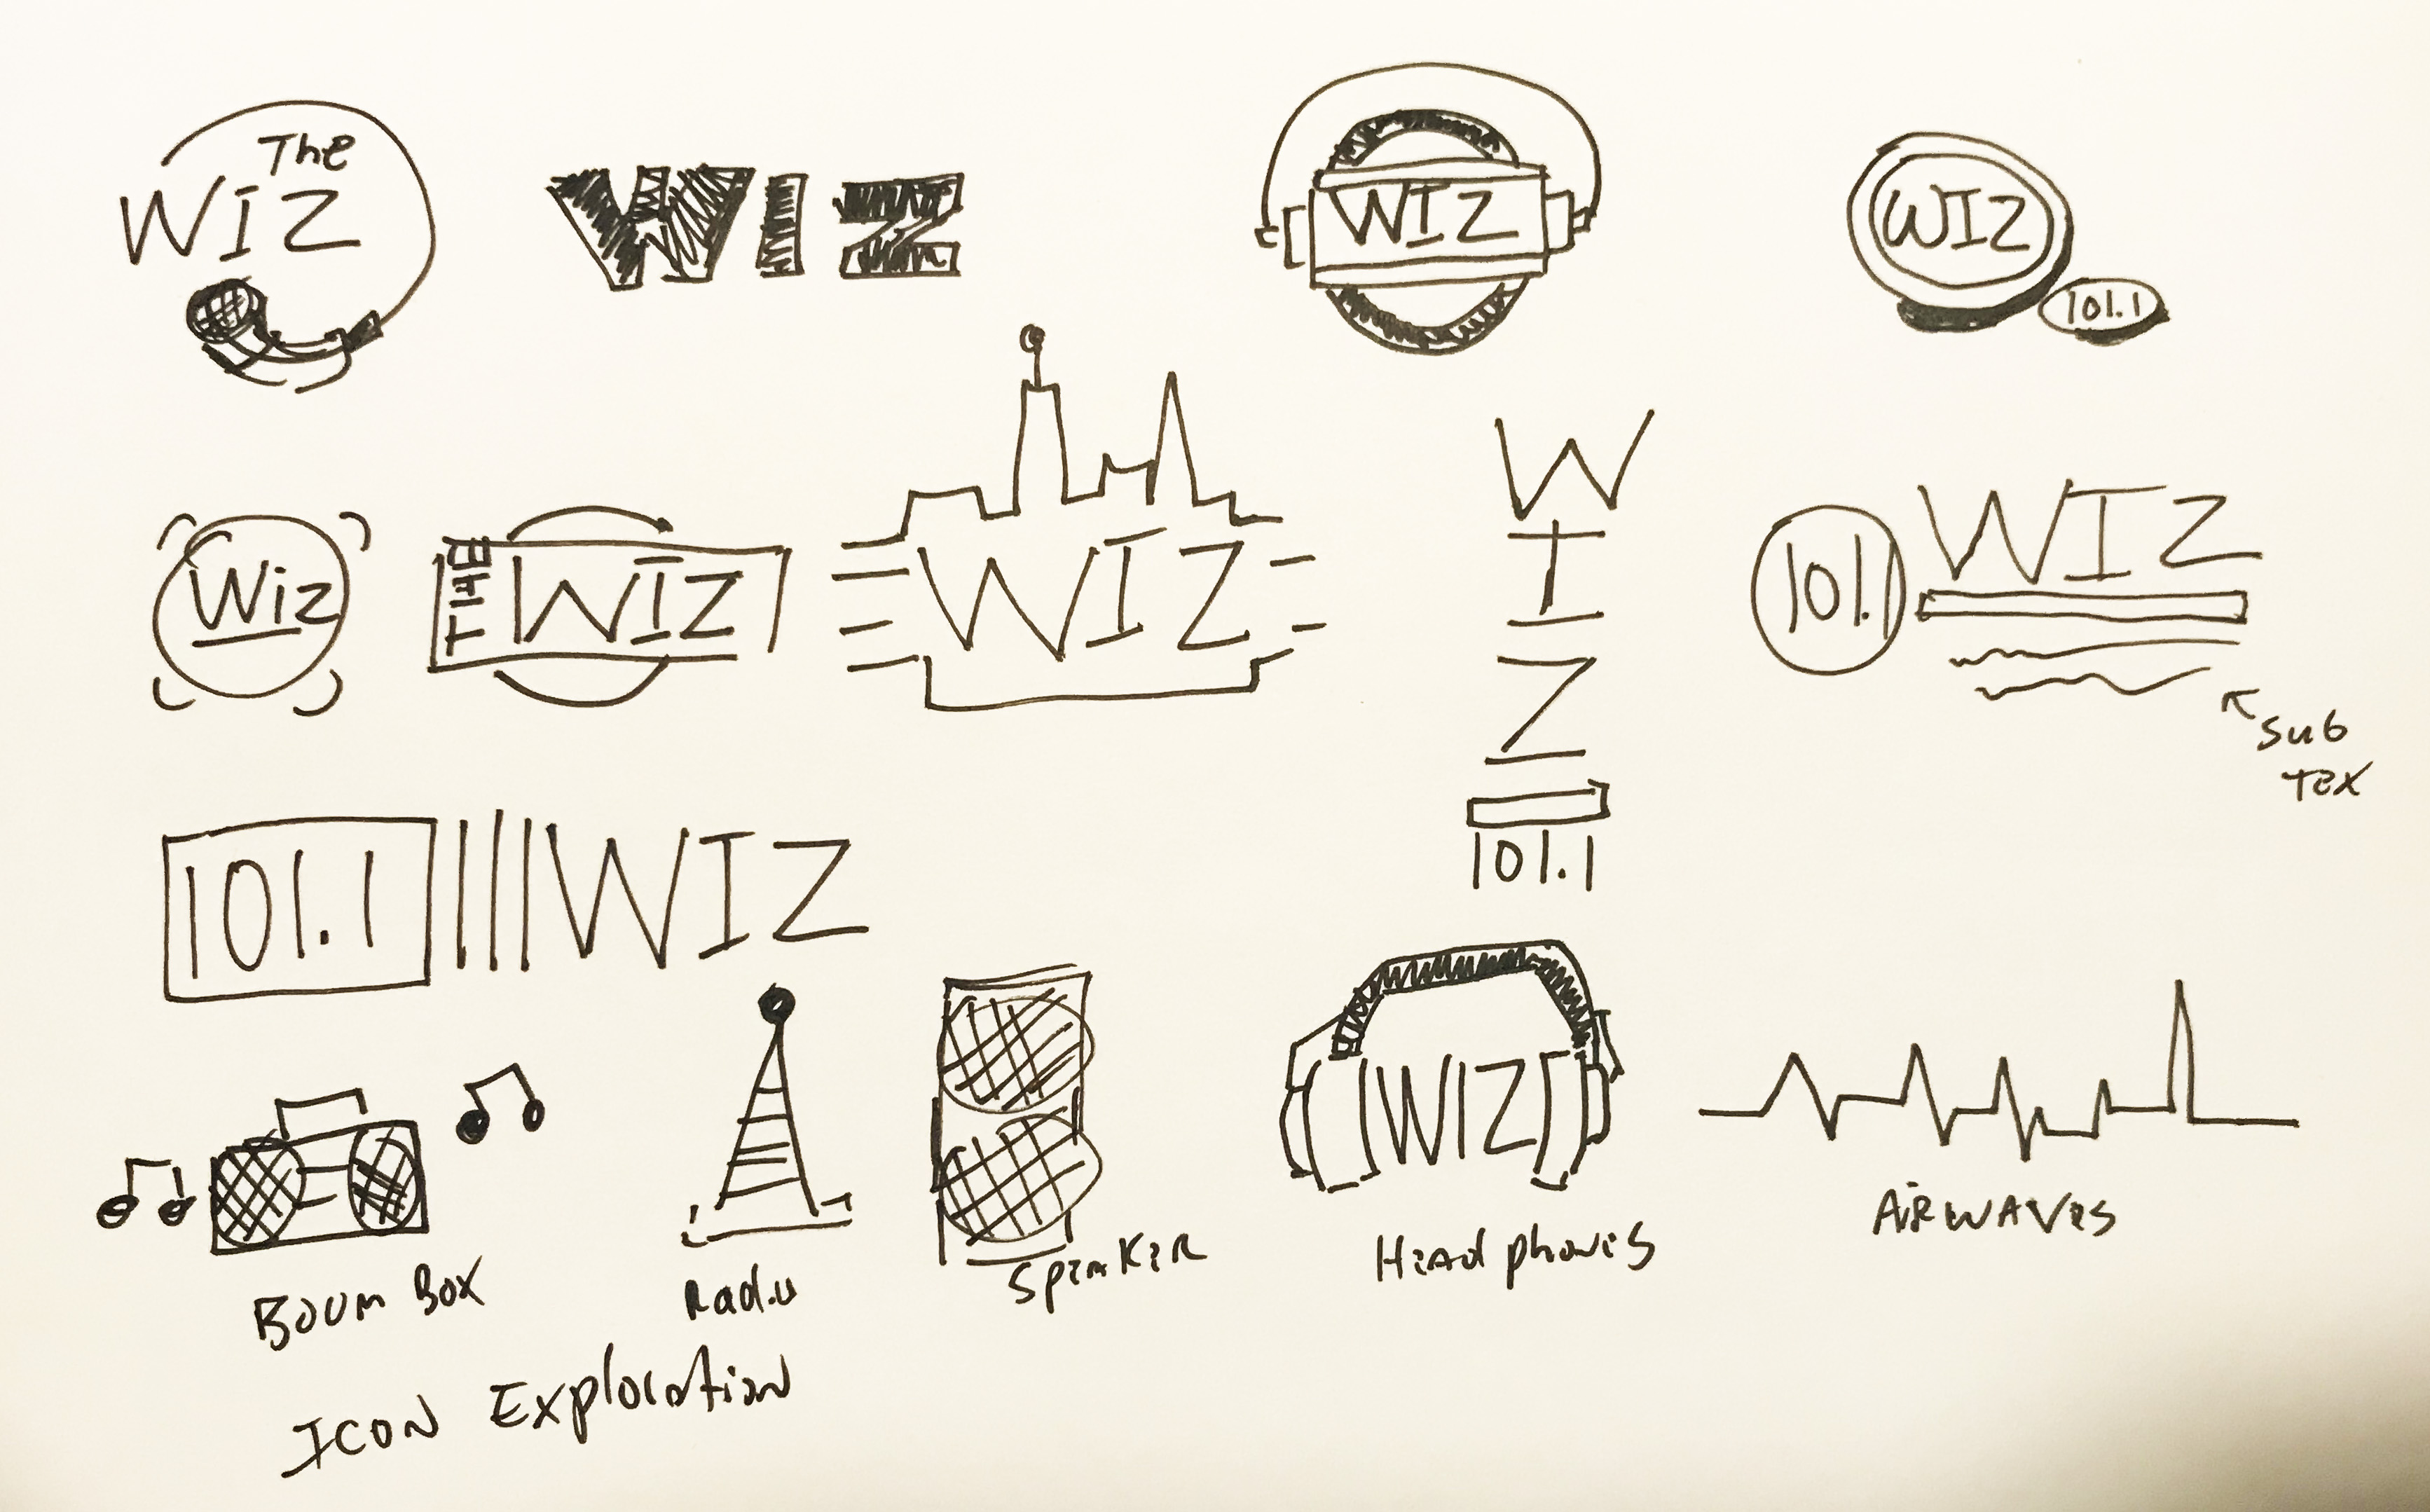 The
WIZ
WIZ
WIZ
WIZ
101.1
Wiz
THE
WIZ
WIZ
W
I
Z
101.1
101.1
WIZ
SUB
TEX
101.1
WIZ
WIZ
BOOM BOX
Radio
SPEAKER
Headphones
AIRWAVES
ICON Exploration